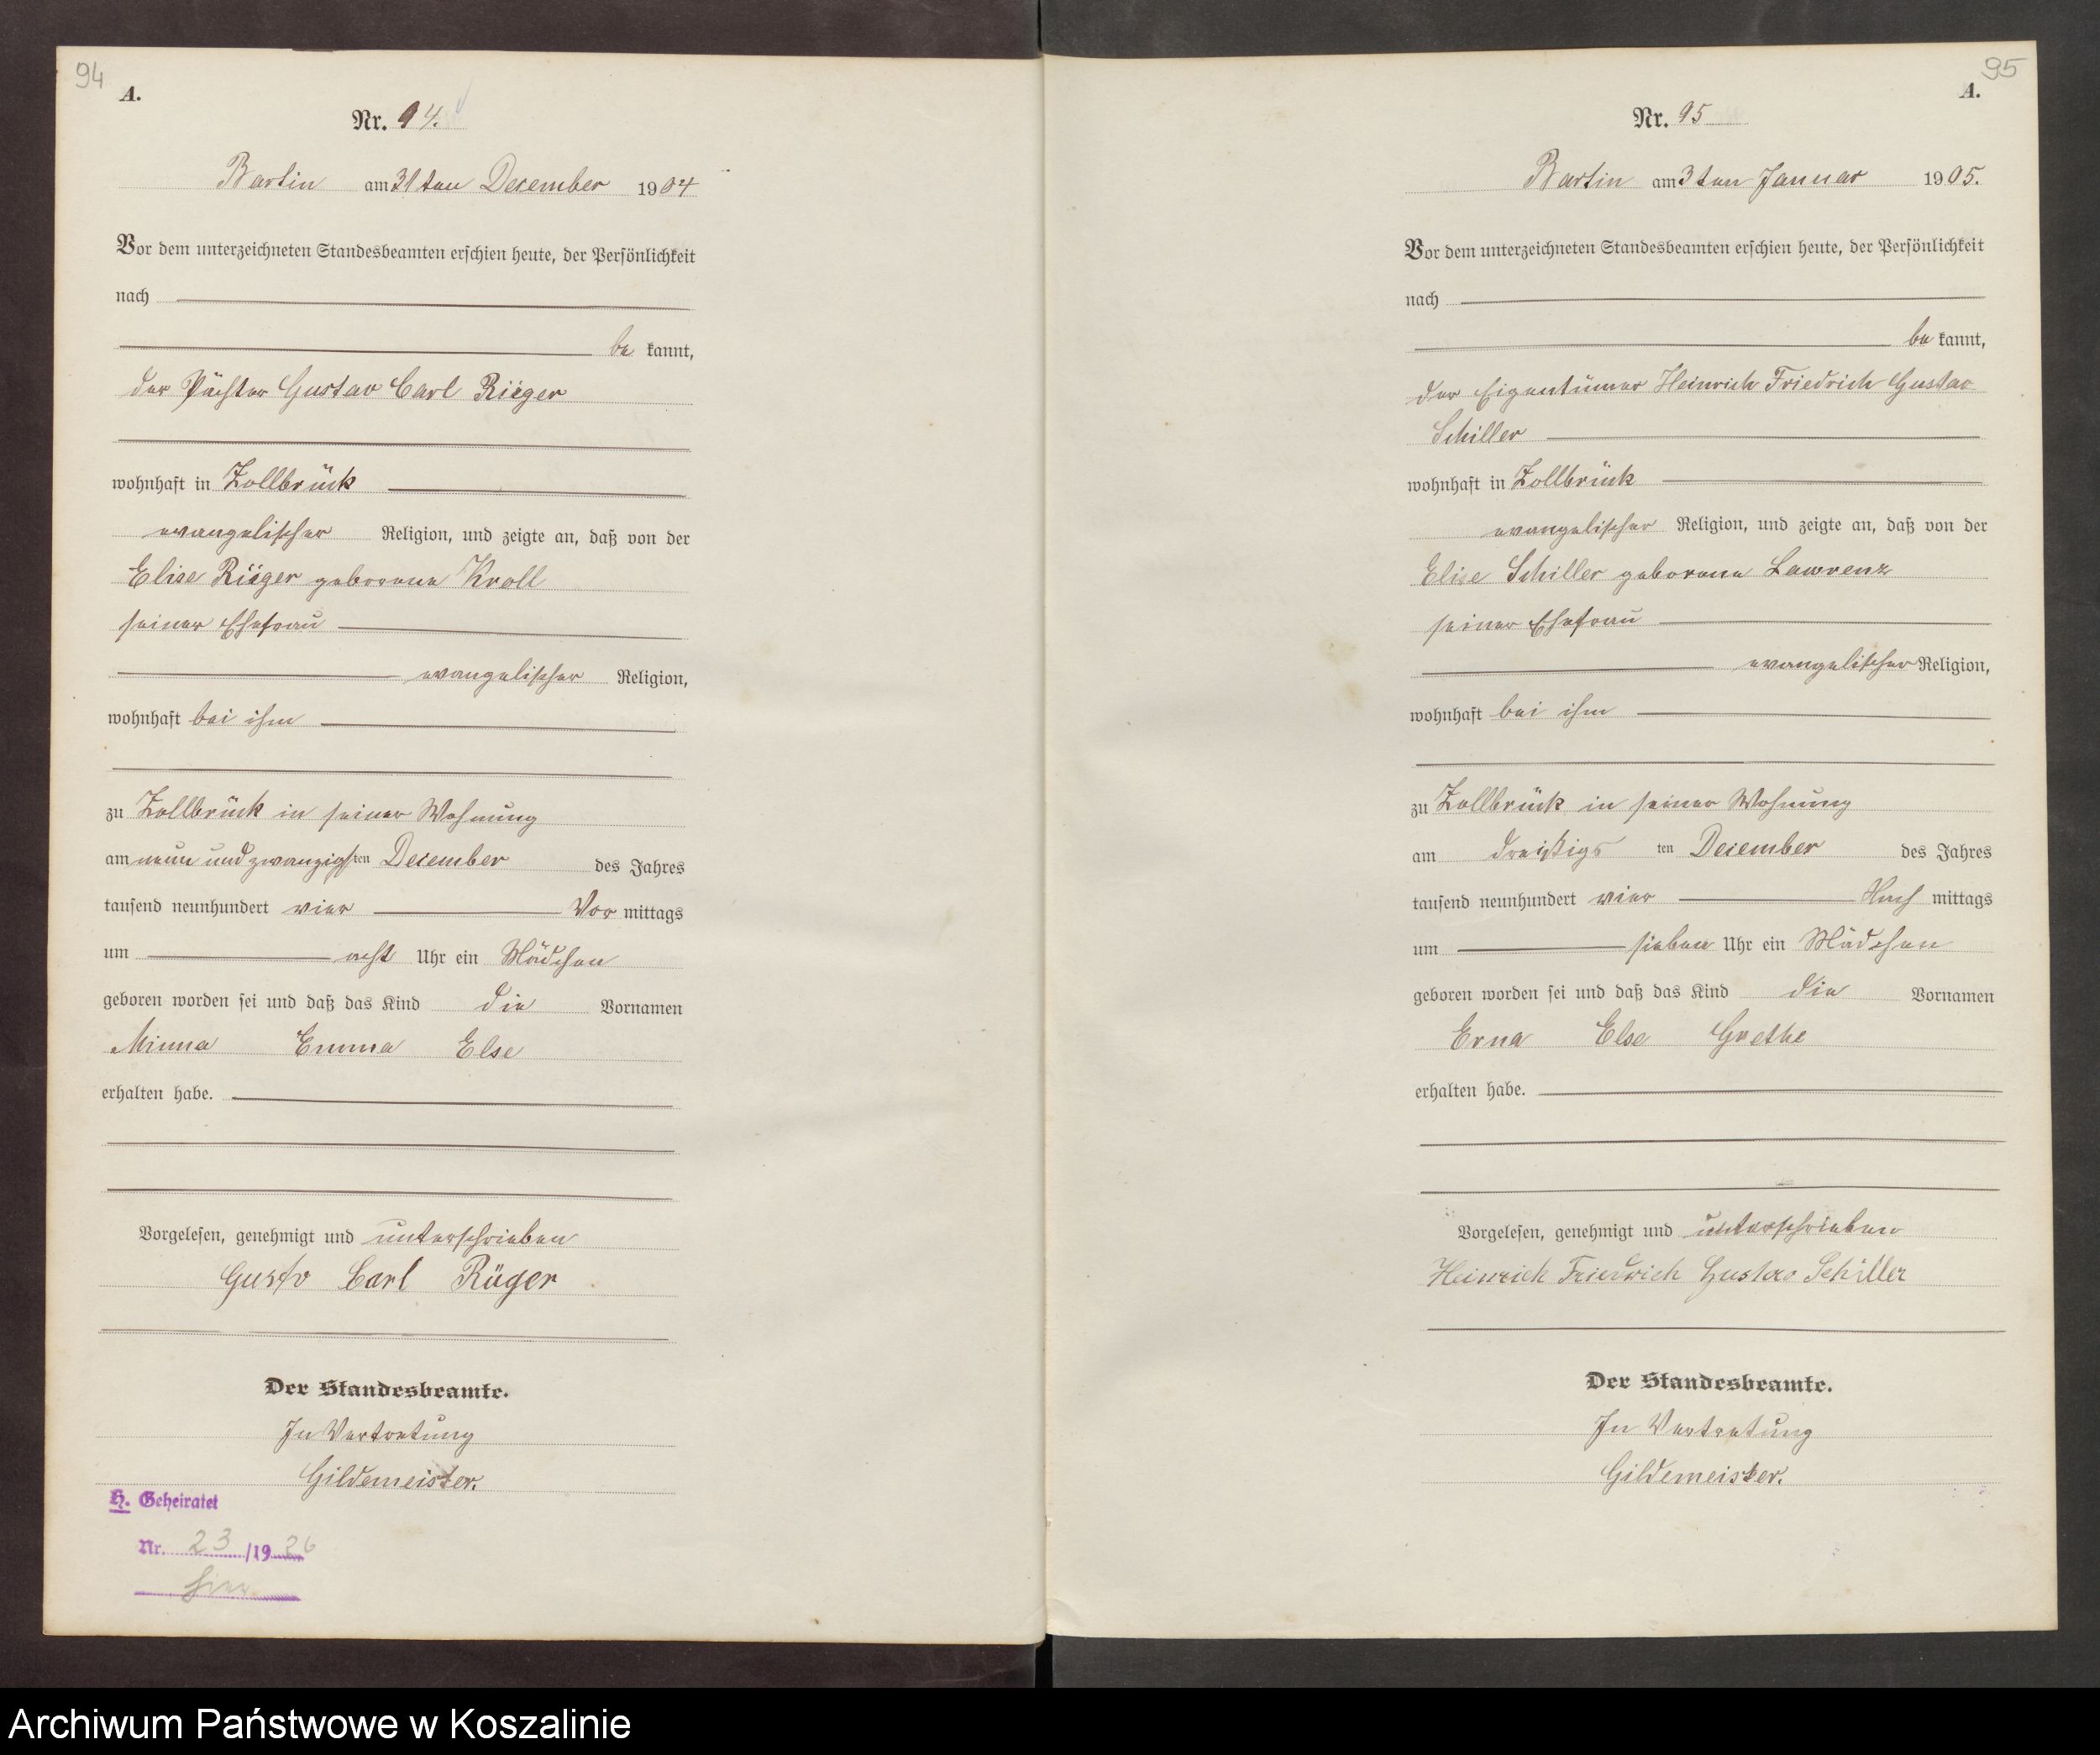 94
A.
Nr. 94.
Bartin am 31ten December 1904
Vor dem unterzeichneten Standesbeamten erschien heute, der Persönlichkeit
nach
be kannt,
der Pächter Gustav Carl Rüger
wohnhaft in Zollbrück
evangelischer Religion, und zeigte an, daß von der
Elise Rüger geborene Kroll
seiner Ehefrau
evangelischer Religion,
wohnhaft bei ihm
zu Zollbrück in seiner Wohnung
am neun und zwanzigsten December des Jahres
tausend neunhundert vier Vor mittags
um acht Uhr ein Mädchen
geboren worden sei und daß das Kind die Vornamen
Minna Emma Else
erhalten habe.
Vorgelesen, genehmigt und unterschrieben
Gustv Carl Rüger
Der Standesbeamte.
In Vertretung
Gildemeister.
H. Geheiratet
Nr. 23/1926
hier
95
A.
Nr. 95
Bartin am 3ten Januar 1905.
Vor dem unterzeichneten Standesbeamten erschien heute, der Persönlichkeit
nach
be kannt,
der Eigentümer Heinrich Friedrich Gustav
Schiller
wohnhaft in Zollbrück
evangelischer Religion, und zeigte an, daß von der
Elise Schiller geborene Lawrenz
seiner Ehefrau
evangelischer Religion,
wohnhaft bei ihm
zu Zollbrück in seiner Wohnung
am dreißigs ten December des Jahres
tausend neunhundert vier Nach mittags
um sieben Uhr ein Mädchen
geboren worden sei und daß das Kind die Vornamen
Erna Else Grethe
erhalten habe.
Vorgelesen, genehmigt und unterschrieben
Heinrich Friedrich Gustav Schiller
Der Standesbeamte.
In Vertretung
Gildemeister.
Archiwum Państwowe w Koszalinie